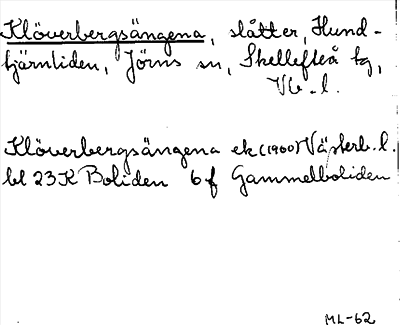 Klöverbergsängena, slåtter, Hund-
tjärnliden, Jörns sn, Skellefteå tg,
Vb. l.
Klöverbergsängena ek (1900) Västerb. l.
bl 23K Boliden 6f Gammelboliden
ML-62